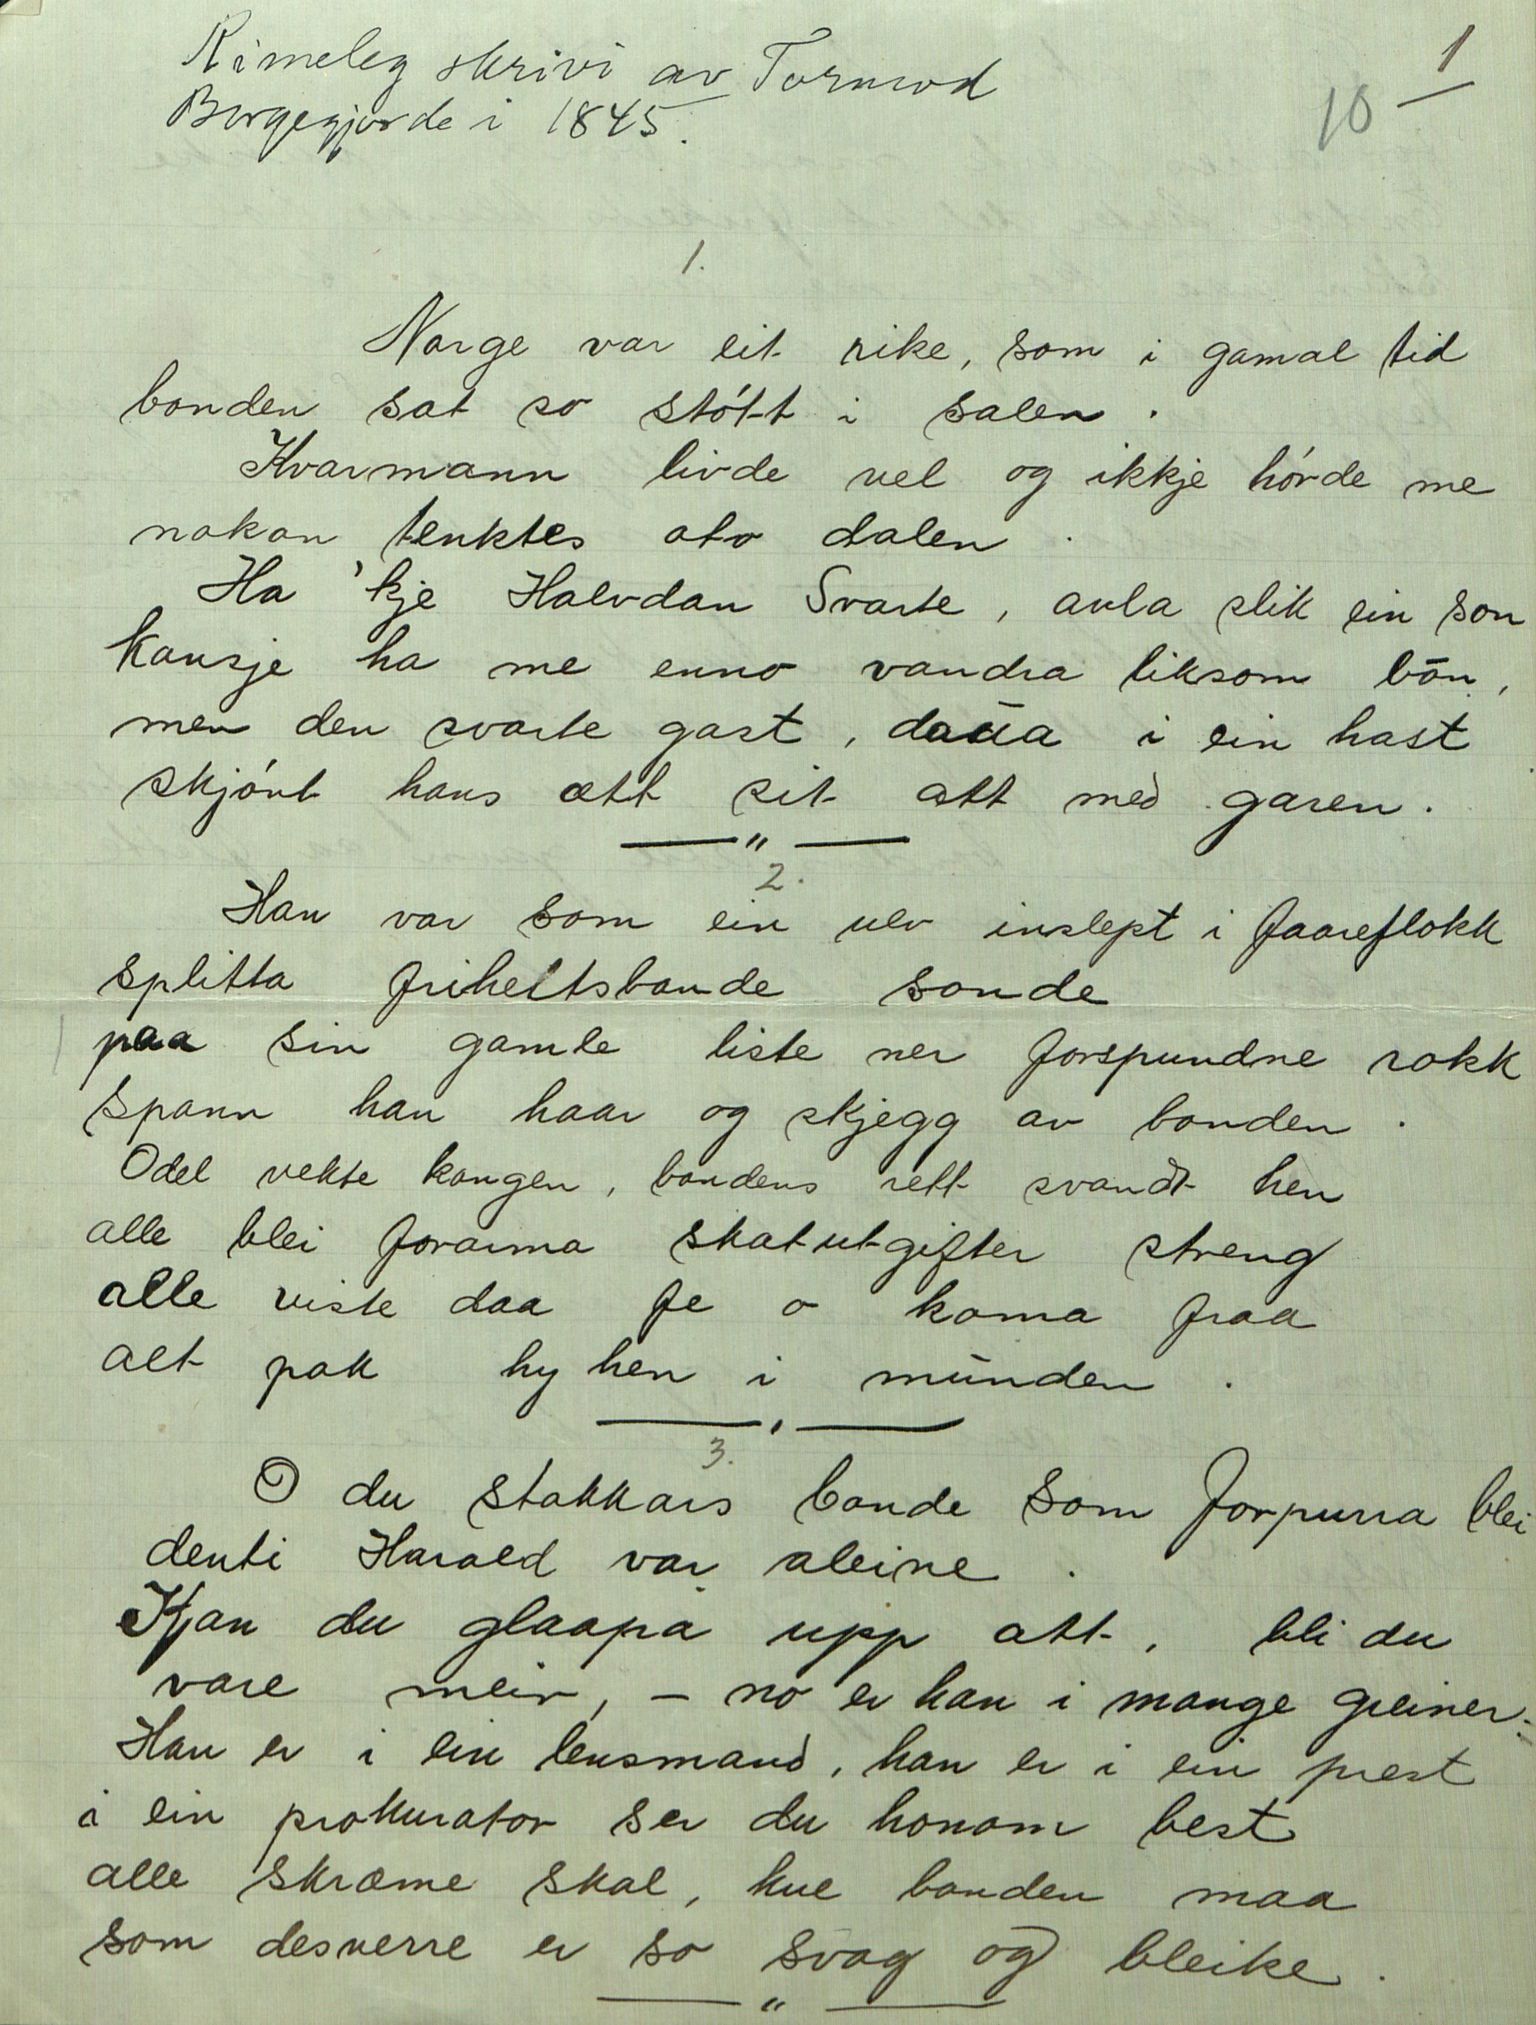 Rimeleg skrivi av Tormod
Borgegjorde i 1845.
1
10
1.
Norge var eit rike, som i gamal tid
bonden sat so stótt i salen.
Kvarmann livde vel og ikkje hórde me
nokon tenktes ato dalen.
Ha 'kje Halvdan Svarte, avla slik ein son
kansje ha me enno vandra liksom bón,
men den svarte gast, i ein hast
skjónt hans ætt sit att med garen.
2.
Han var som ein ulv inslept i faareflokk
splitta friheitsbande sonde
paa sin gamle liste ner forspundne rokk
spann han haar og skjegg av bonden.
Odel vekte kongen, bondens rett svandt hen
alle blei forarma skatutgifter streng
alle viste daa fe o koma fraa
alt pak hy hen i munden.
3.
O du stakkars bonde som forpurra blei
denti Harald var aleine.
Kjan du glaapa upp att, bli du
vare meir, – no er han i mange greiner.
Han er i ein lensmand, han er i ein prest
i ein prokurator ser du honom best
alle skræme skal, kue bonden maa
som desverre er so svag og bleike.